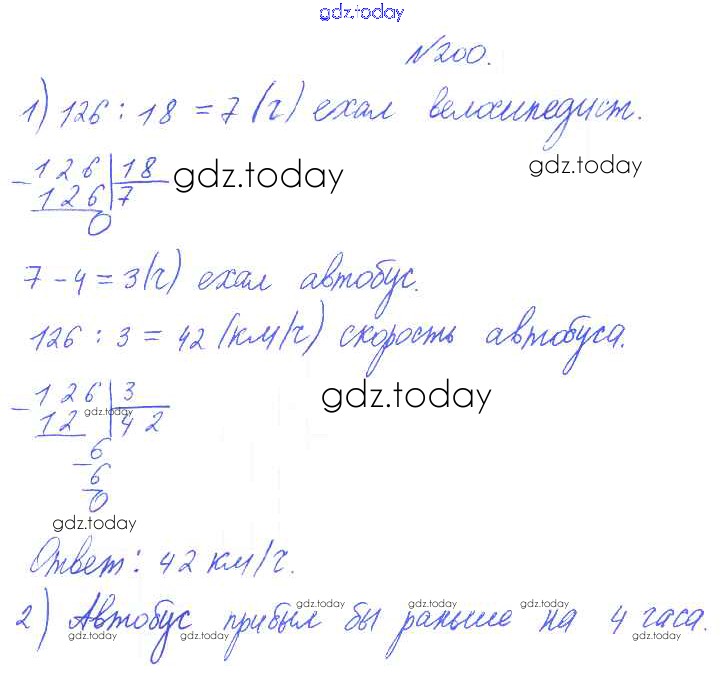 gdz.today
№200.
1) 126 : 18 = 7 (ч) ехал велосипедист.
- 1 2 6 | 18
1 2 6 | 7
0
gdz.today
gdz.today
7 - 4 = 3 (ч) ехал автобус.
126 : 3 = 42 (км/ч) скорость автобуса.
- 1 2 6 | 3
1 2 | 4 2
- 6
6
0
gdz.today
gdz.today
gdz.today
Ответ: 42 км/ч.
2) Автобус прибыл бы раньше на 4 часа.
gdz.today
gdz.today
gdz.today
gdz.today
gdz.today
gdz.today
gdz.today